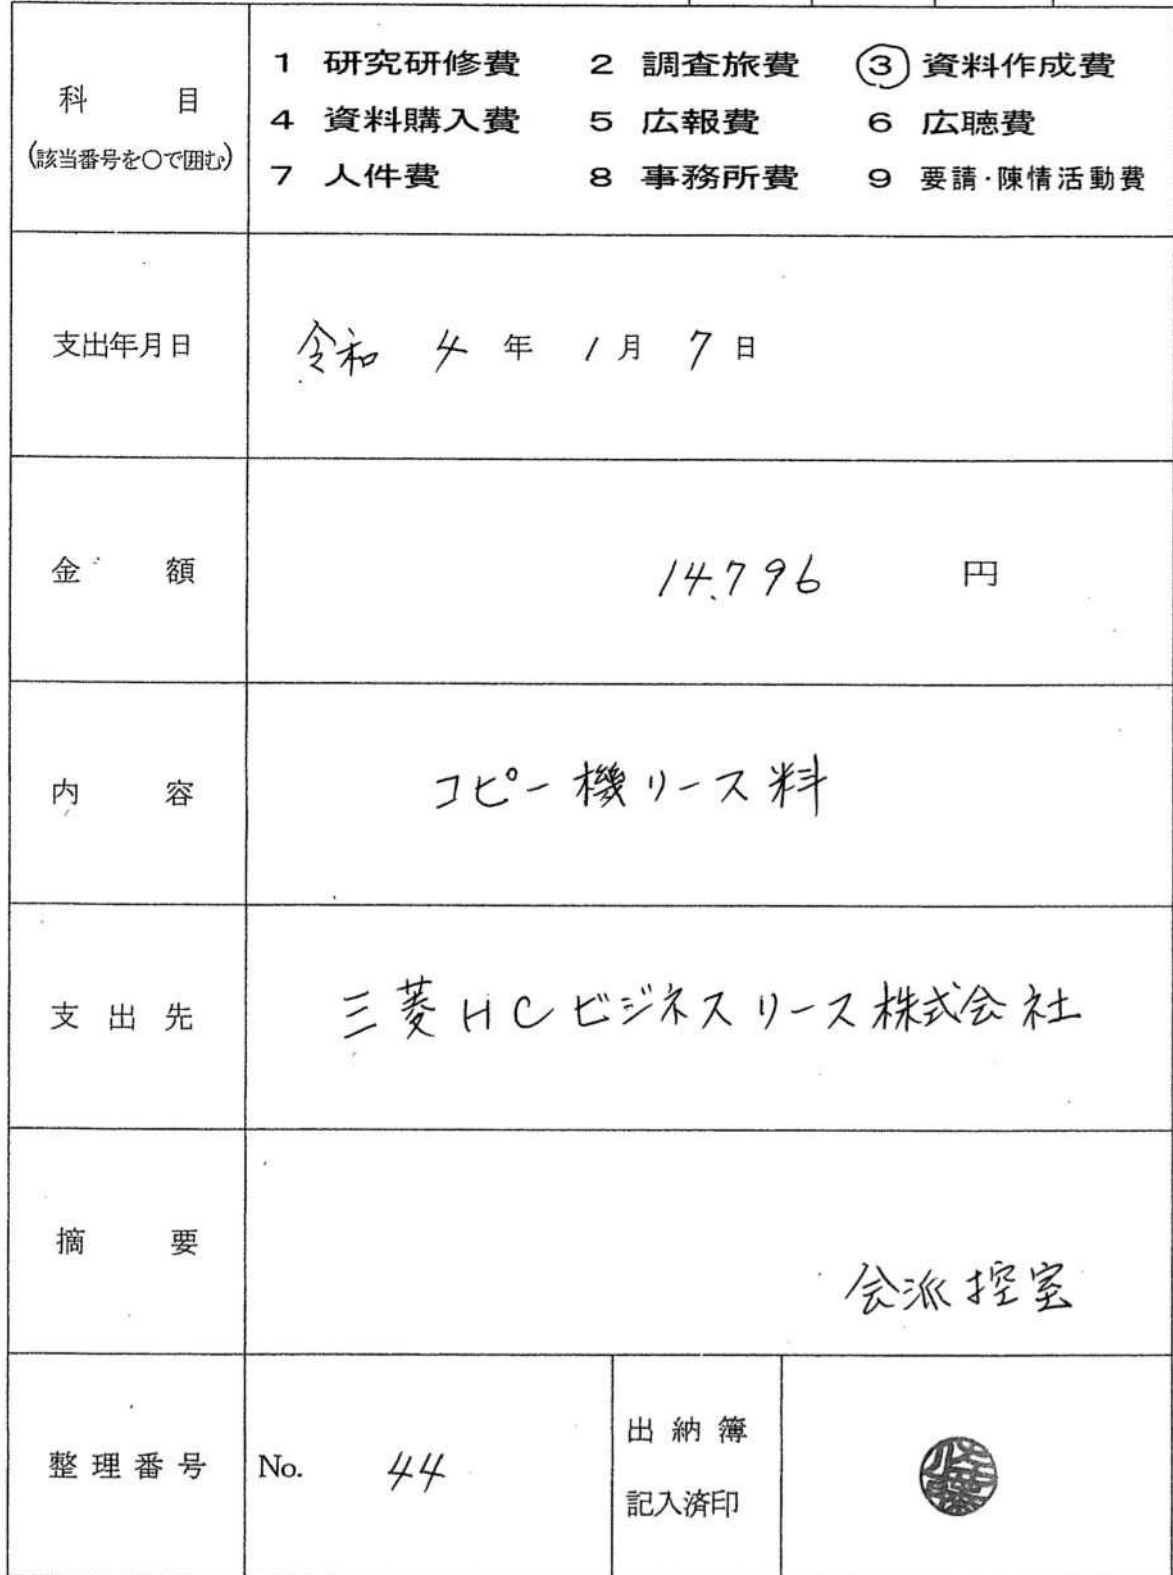 科 目
(該当番号を○で囲む)
1 研究研修費 2 調査旅費 3 資料作成費
4 資料購入費 5 広報費 6 広聴費
7 人件費 8 事務所費 9 要請・陳情活動費
支出年月日 令和 4 年 1 月 7 日
金 額 14,796 円
内 容 コピー機リース料
支 出 先 三菱HCビジネスリース株式会社
摘 要 会派控室
整理番号 No. 44
出納簿
記入済印